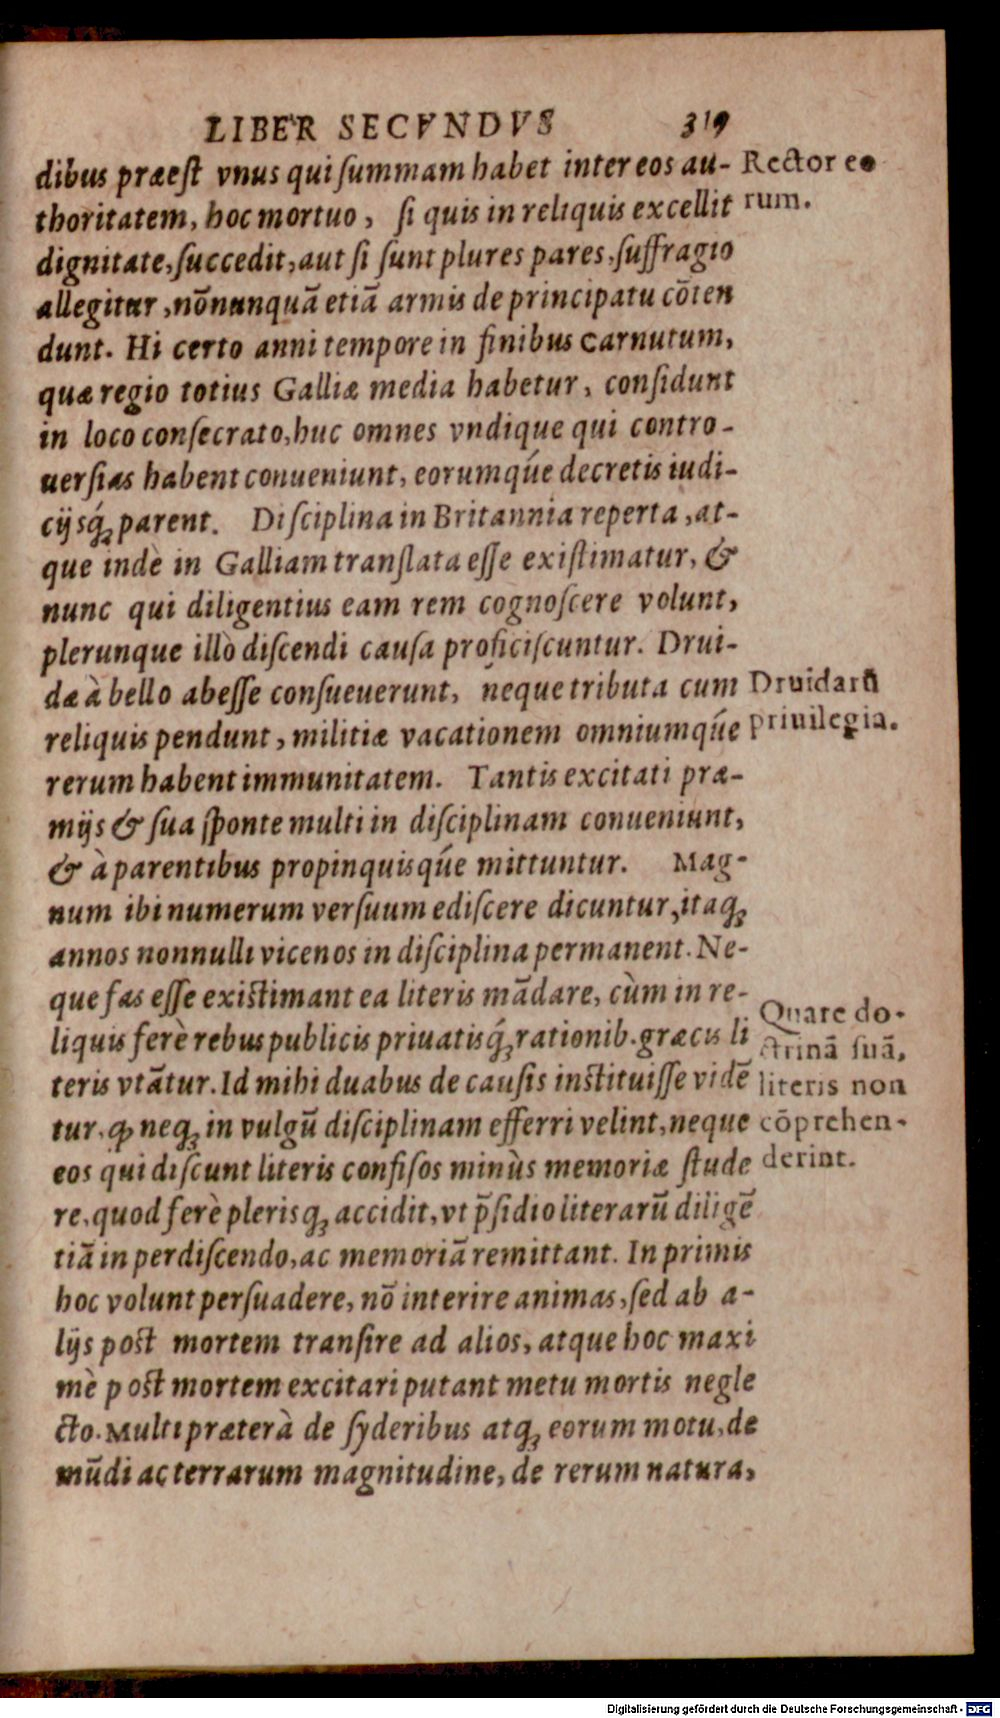 LIBER SECVNDVS 319
dibus præest vnus qui ſummam habet inter eos au-
thoritatem, hoc mortuo, ſi quis in reliquis excellit
dignitate, ſuccedit, aut ſi ſunt plures pares, ſuffragio
allegitur, nōnunquā etiā armis de principatu cōten
dunt. Hi certo anni tempore in finibus Carnutum,
quæ regio totius Galliæ media habetur, conſidunt
in loco conſecrato, huc omnes vndique qui contro-
uerſias habent conueniunt, eorumqúe decretis iudi-
cijsq́ꝫ parent. Diſciplina in Britannia reperta, at-
que indè in Galliam tranſlata eſſe exiſtimatur, &
nunc qui diligentius eam rem cognoſcere volunt,
plerunque illò diſcendi cauſa proficiſcuntur. Drui-
dæ à bello abeſſe conſueuerunt, neque tributa cum
reliquis pendunt, militiæ vacationem omniumqúe
rerum habent immunitatem. Tantis excitati præ-
mijs & ſua ſponte multi in diſciplinam conueniunt,
& à parentibus propinquisqúe mittuntur. Mag-
num ibi numerum verſuum ediſcere dicuntur, itaqꝫ
annos nonnulli vicenos in diſciplina permanent. Ne-
que fas eſſe exiſtimant ea literis mādare, cùm in re-
liquis ferè rebus publicis priuatisq́ꝫ rationib. græcis li
teris vtātur. Id mihi duabus de cauſis inſtituiſſe vidē
tur, ꝙ neqꝫ in vulgū diſciplinam efferri velint, neque
eos qui diſcunt literis confiſos minùs memoriæ ſtude
re, quod ferè plerisqꝫ accidit, vt p̄ſidio literarū diligē
tiā in perdiſcendo, ac memoriā remittant. In primis
hoc volunt perſuadere, nō interire animas, ſed ab a-
lijs poſt mortem tranſire ad alios, atque hoc maxi
mè poſt mortem excitari putant metu mortis negle
cto. Multi præterà de ſyderibus atqꝫ eorum motu, de
mūdi ac terrarum magnitudine, de rerum natura,
Rector eo
rum.
Druidarū
priuilegia.
Quare do-
ctrinā ſuā,
literis non
cōprehen-
derint.
Digitalisierung gefördert durch die Deutsche Forschungsgemeinschaft - DFG